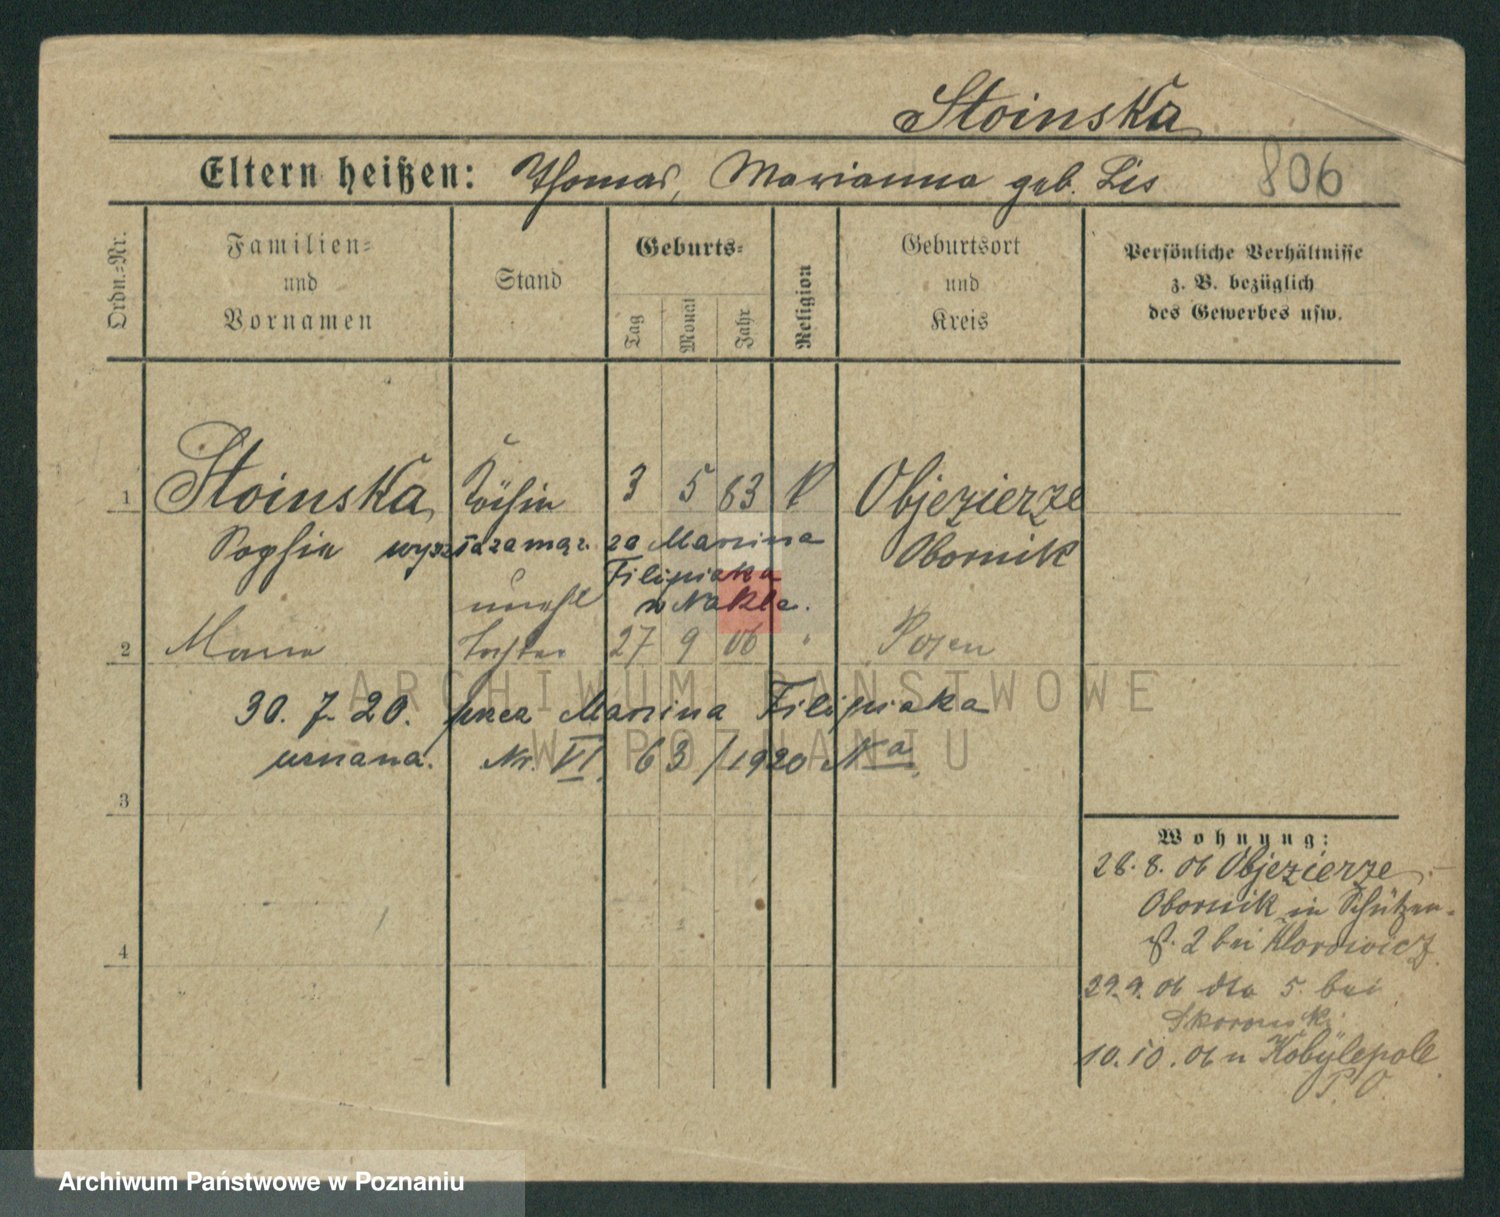 Stoinska
Eltern heißen: Thomas, Marianna geb. Lis 806
Ordn.=Nr.
Familien=
und
Vornamen
Stand
Geburts=
Tag
Monat
Jahr
Religion
Geburtsort
und
Kreis
Persönliche Verhältnisse
z. B. bezüglich
des Gewerbes usw.
1 Stoinska Köchin 3 5 83 K Objezierze
Sophia wysz za Marcina Obornik
Filipiaka
unehl w Nakle.
2 Maria Tochter 27 9 06 " Posen
30. 7. 20. przez Marcina Filipiaka
uznana. Nr. VI. 63/1920 Na
3
4
Wohnung:
28. 8. 06 Objezierze
Obornik in Schützen-
st. 2 bei
29. 9. 06 dto 5. bei
Skoronski
10. 10. 06 n Kobylepole
P. O.
ARCHIWUM PAŃSTWOWE
W POZNANIU
Archiwum Państwowe w Poznaniu